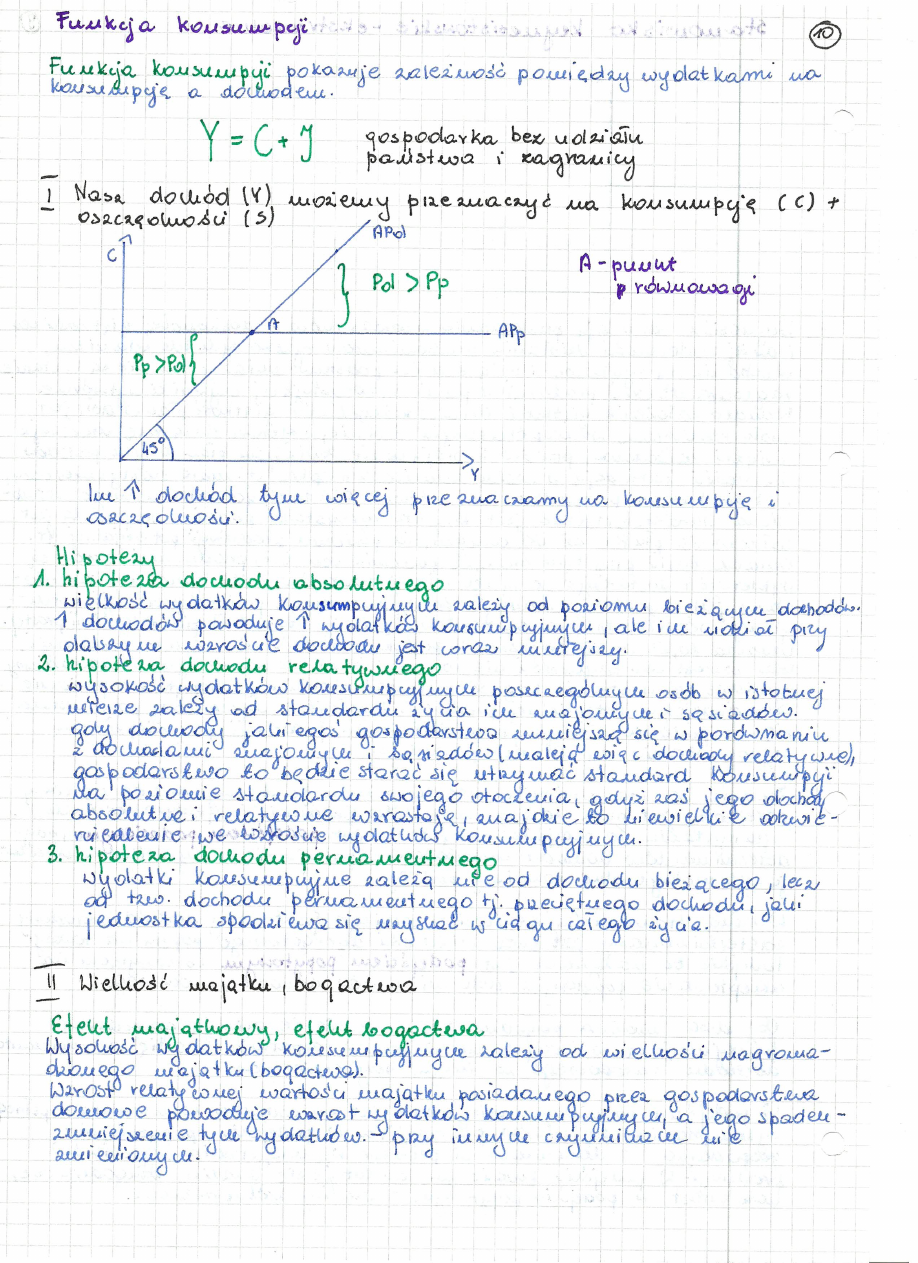 Funkcja konsumpcji
10
Funkcja konsumpcji pokazuje zależność pomiędzy wydatkami na
konsumpcję a dochodem.
Y = C + J
gospodarka bez udziału
państwa i zagranicy
I Nasz dochód (Y) możemy przeznaczyć na konsumpcję (C) +
oszczędności (S)
C
APd
Pd > Pp
A - punkt
równowagi
A
APp
Pp > Pd
45°
Y
Im ↑ dochód tym więcej przeznaczamy na konsumpcję i
oszczędności.
Hipotezy
1. hipoteza dochodu absolutnego
wielkość wydatków konsumpcyjnych zależy od poziomu bieżących dochodów.
↑ dochodów powoduje ↑ wydatków konsumpcyjnych, ale ich udział przy
dalszym wzroście dochodu jest coraz mniejszy.
2. hipoteza dochodu relatywnego
wysokość wydatków konsumpcyjnych poszczególnych osób w istotnej
mierze zależy od standardu życia ich znajomych i sąsiadów.
gdy dochody jakiegoś gospodarstwa zmniejszą się w porównaniu
z dochodami znajomych i sąsiadów (maleją więc dochody relatywne),
gospodarstwo to będzie starać się utrzymać standard konsumpcji
na poziomie standardu swojego otoczenia, gdyż zaś jego dochody
absolutne i relatywne wzrastają, znajdzie to niewielkie odzwier-
ciedlenie we wzroście wydatków konsumpcyjnych.
3. hipoteza dochodu permamentnego
wydatki konsumpcyjne zależą nie od dochodu bieżącego, lecz
od tzw. dochodu permamentnego tj. przeciętnego dochodu, jaki
jednostka spodziewa się uzyskać w ciągu całego życia.
II Wielkość majątku, bogactwa
Efekt majątkowy, efekt bogactwa
Wysokość wydatków konsumpcyjnych zależy od wielkości nagroma-
dzonego majątku (bogactwa).
Wzrost relatywnej wartości majątku posiadanego przez gospodarstwa
domowe powoduje wzrost wydatków konsumpcyjnych, a jego spadek -
zmniejszenie tych wydatków. - przy innych czynnikach nie
zmienionych.